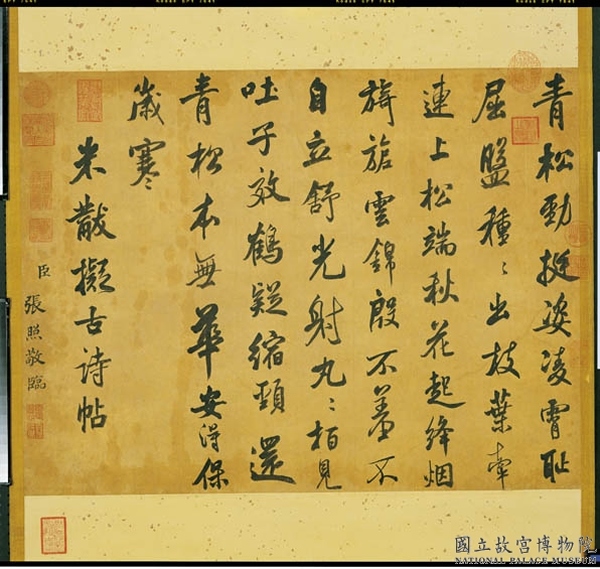 青松勁挺姿凌霄耻
屈盤種〻出枝葉牽
連上松端秋花起絳烟
旖旎雲錦殷不羞不
自立舒光射丸〻栢見
吐子效鶴疑縮頸還
青松本無華安得保
歲寒
米黻擬古詩帖
臣張照敬臨
國立故宮博物院
NATIONAL PALACE MUSEUM